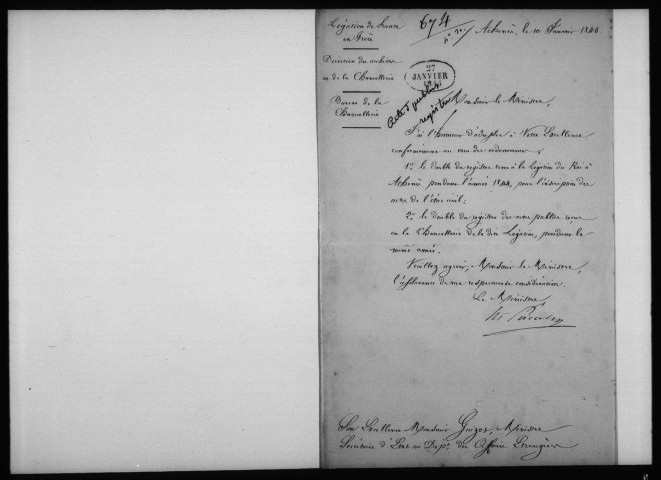 Légation de France
en Grèce
Direction des archives
et de la Chancellerie
Bureau de la
Chancellerie
674
Athènes, le 10 Janvier 1846
27
JANVIER
Actes publics
registres
Monsieur le Ministre,
J'ai l'honneur d'adresser à Votre Excellence,
conformément au vœu des ordonnances,
1º. le double du registre tenu à la Légation du Roi à
Athènes pendant l'année 1845, pour l'inscription des
actes de l'état civil;
2º. le double du registre des actes publics tenu
en la Chancellerie de la dite Légation, pendant la
même année.
Veuillez agréer, Monsieur le Ministre,
l'assurance de ma respectueuse considération.
Le Ministre
Son Excellence Monsieur Guizot, Ministre
Secrétaire d'Etat au Dépt. des Affaires Etrangères